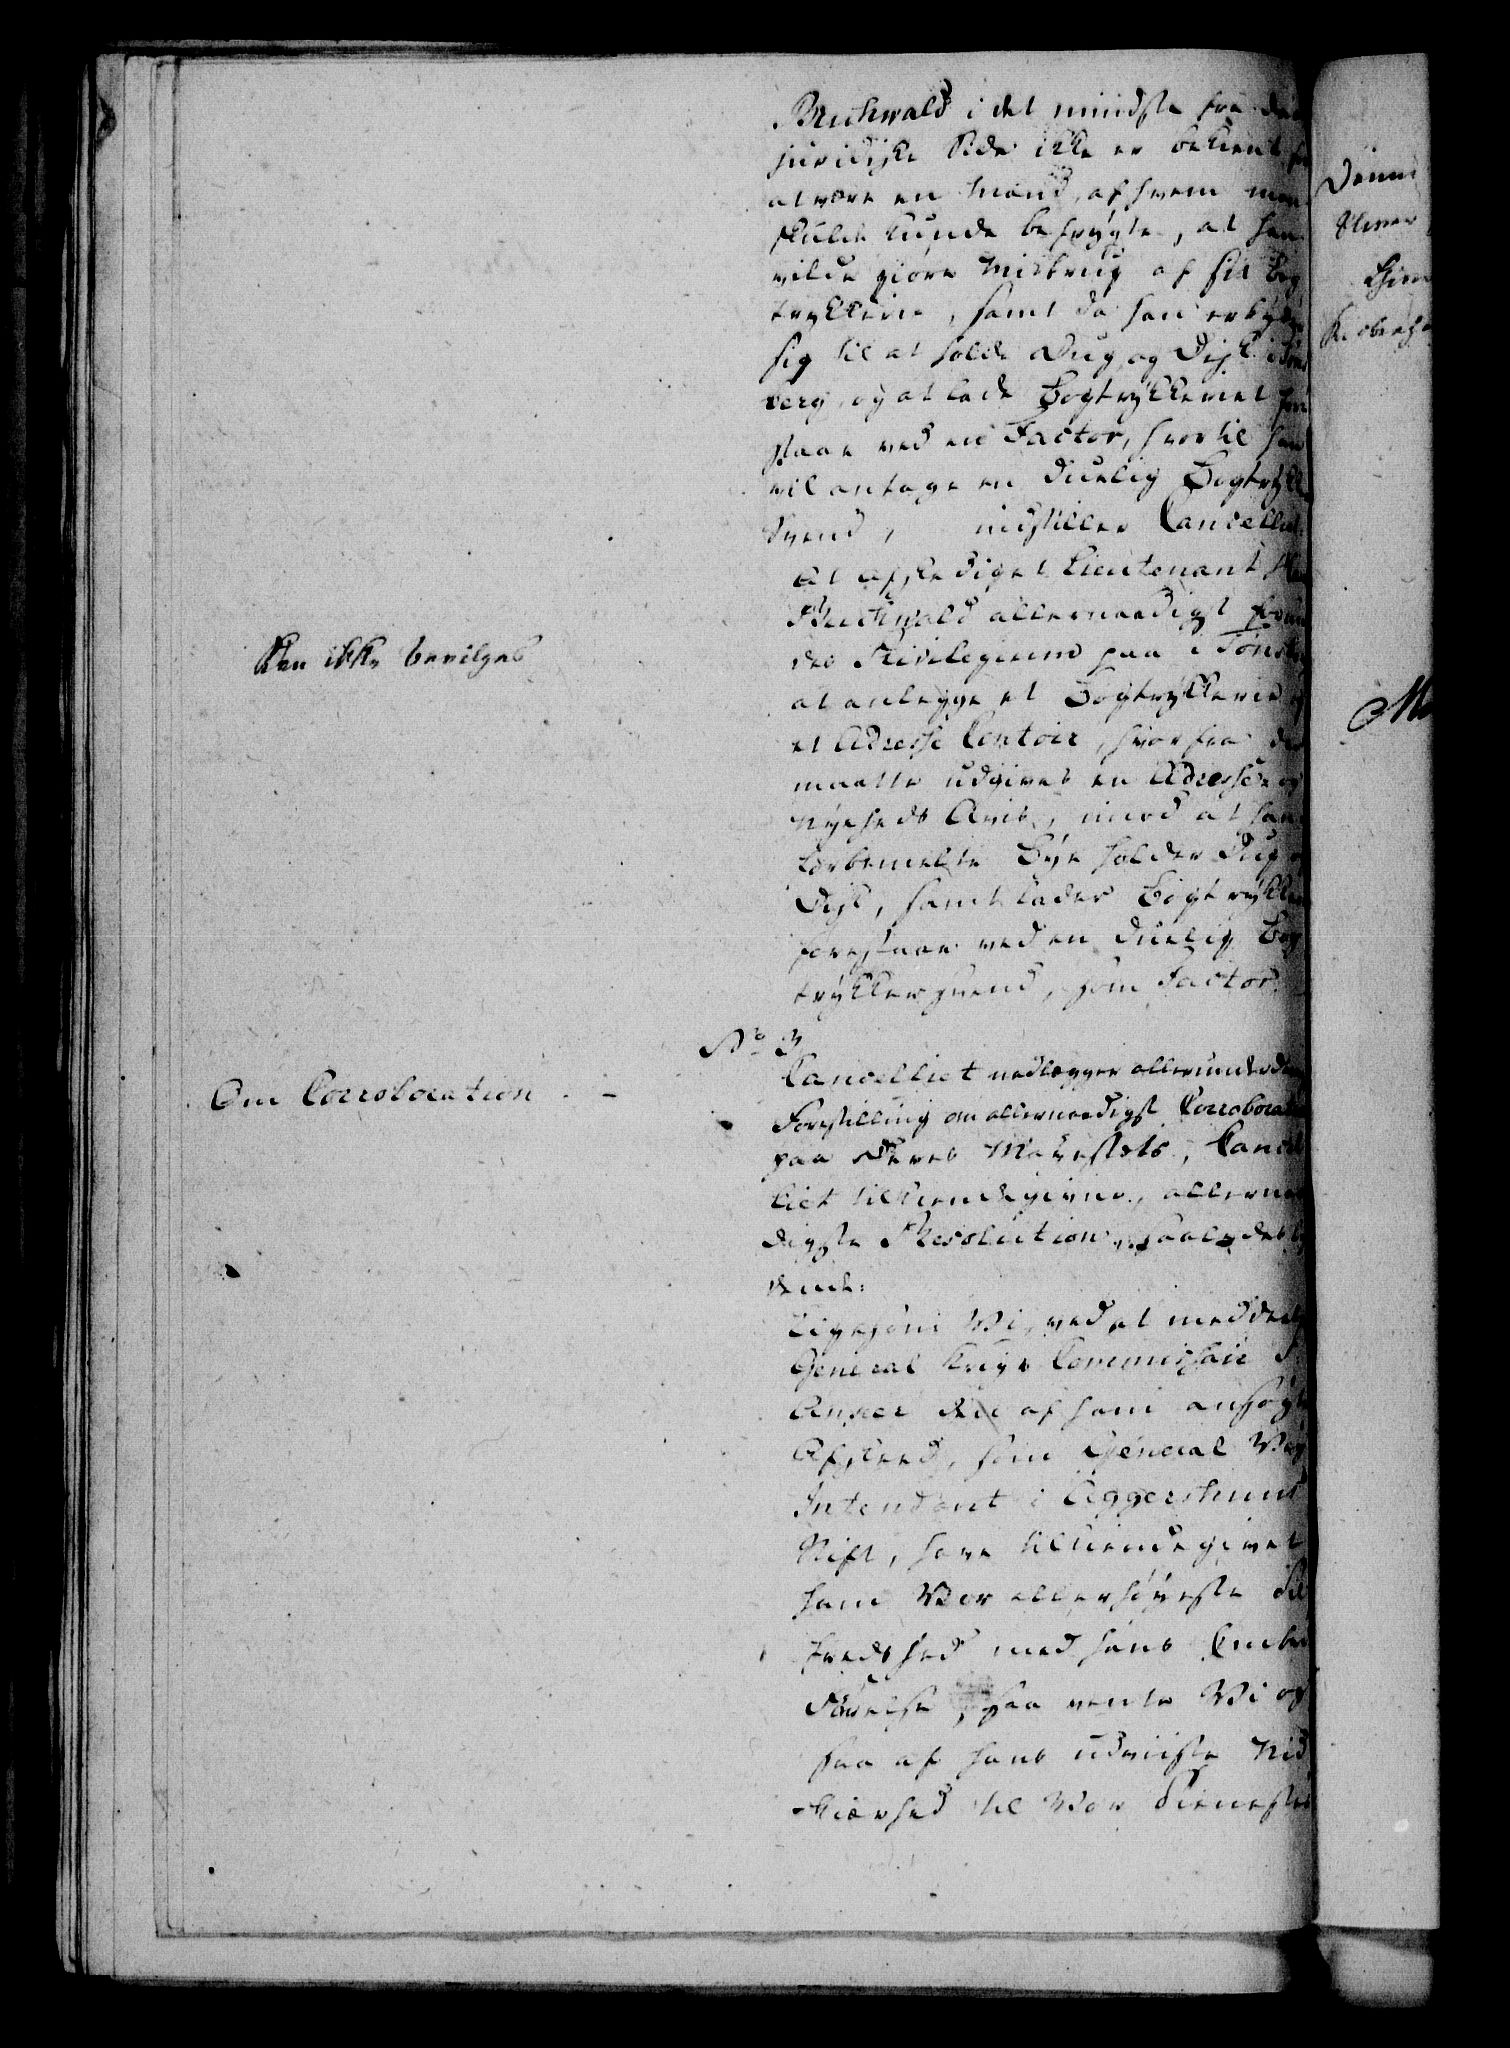 Buchwald i det mindste fra den
juridiske Side ikke er bekient for
at være en Mand, af hvem man
skulde kunde befrygte, at han
vilde giøre Misbrug af sit Bog
trykkerie, samt da han erbyder
sig til at holde Dug og Disk i Töns
berg, og at lade Bogtrykkeriet fore
staae ved en Factor, hvortil han
vil antage en duelig Bogtrykker
Svend, indstiller Cancelliet:
At afskediget Lieutenant
Buchwald allernaadigst forun
des Privilegium paa i Tönsberg
at anlegge et Bogtrykkerie og
et Adresse Contoir, hvorfra der
maatte udgives en Adresse og
Nyheds Avis, imod at han i
bemelte Bye holder Dug og
Disk, samt lader Bogtrykkeriet
forestaae ved en duelig Bog
trykkersvend, som Factor.
Kan ikke bevilges
No 3
Om Corroboration. -
Cancelliet nedlægger allerunderdanigst
Forestilling om allernaadigst Corroboration
paa Deres Majestæts, Cancel
liet tilkiendegivne, allernaa
digste Resolution, saaledes ly
dende:
Ligesom Vi, ved at meddele
General Krigs Commissair P.
Anker den af ham ansøgte
Afskeed, som General Vey
Intendant i Aggershuus
Stift, have tilkiendegivet
ham Vor allerhöyeste Til
fredshed med hans Embeds
Førelse, saa vente Vi og
saa af hans udviiste Nid
kiærhed til Vor Tienestes